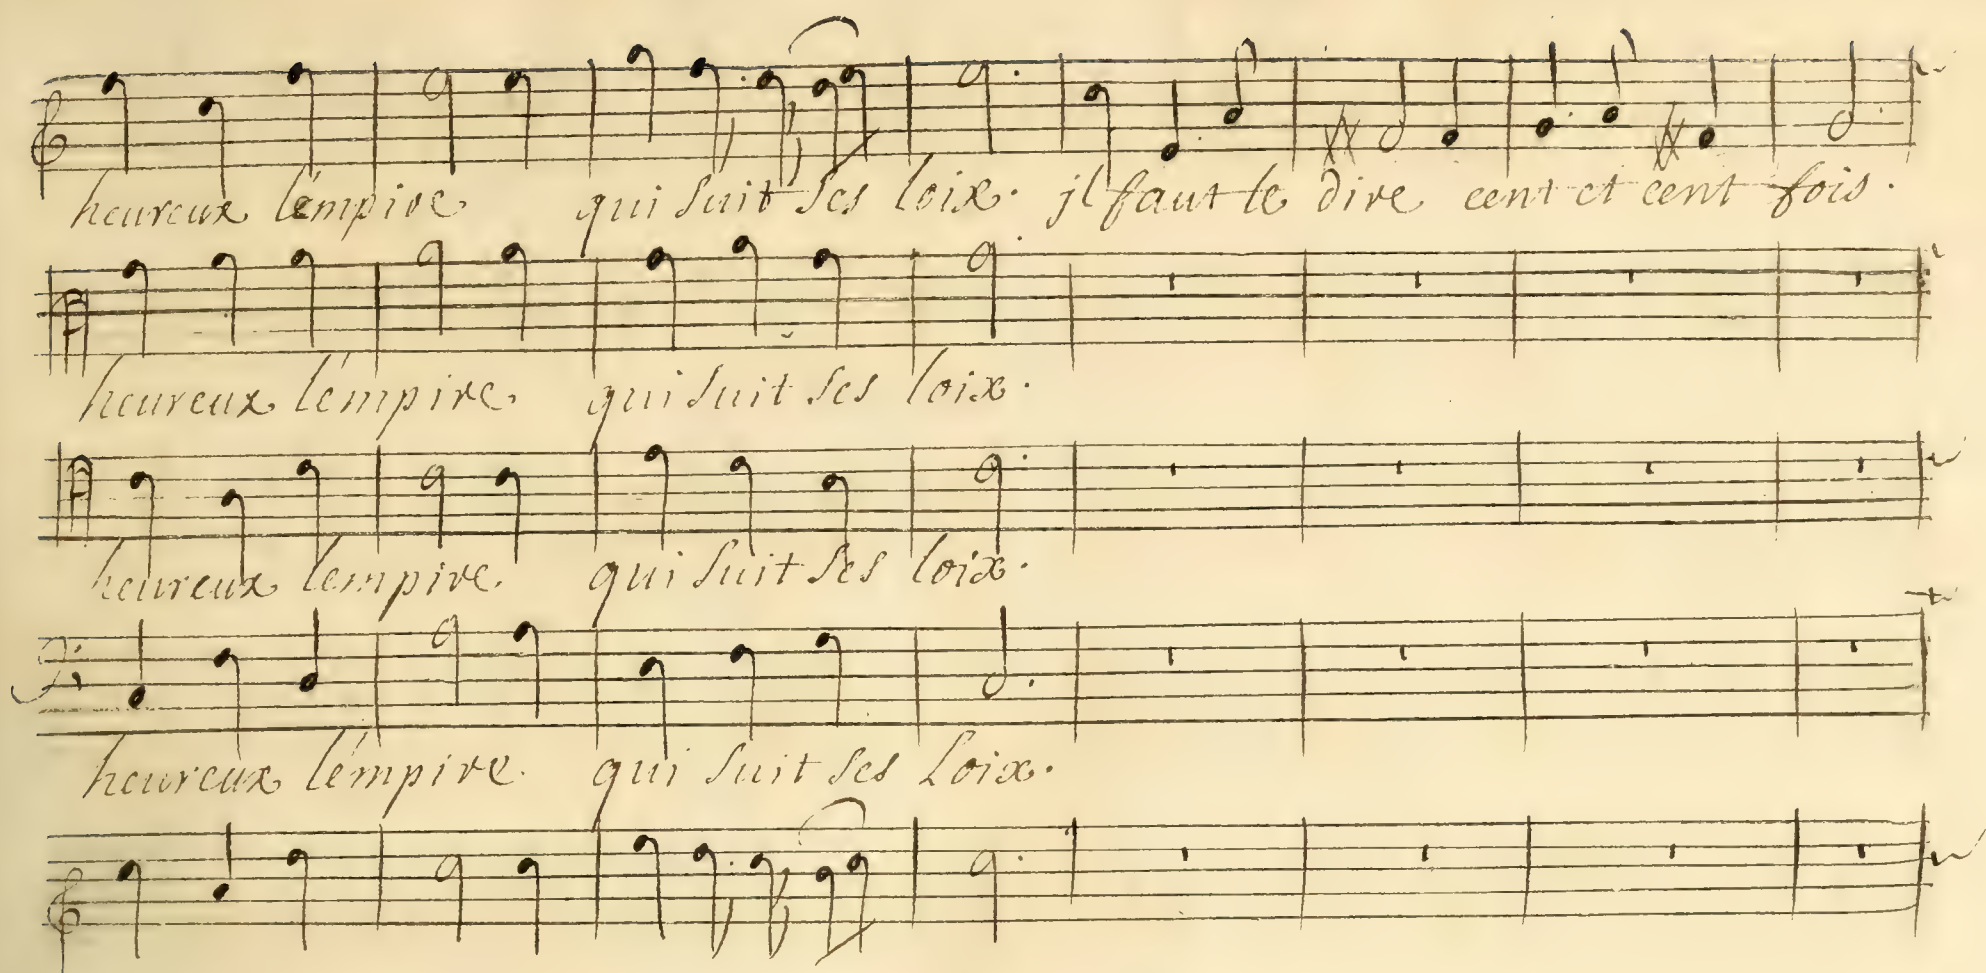 heureux l'empire qui suit ses loix. jl faut le dire cent et cent fois.
heureux l'empire. qui suit ses loix.
heureux l'empire. qui suit ses loix.
heureux l'empire. qui suit ses Loix.